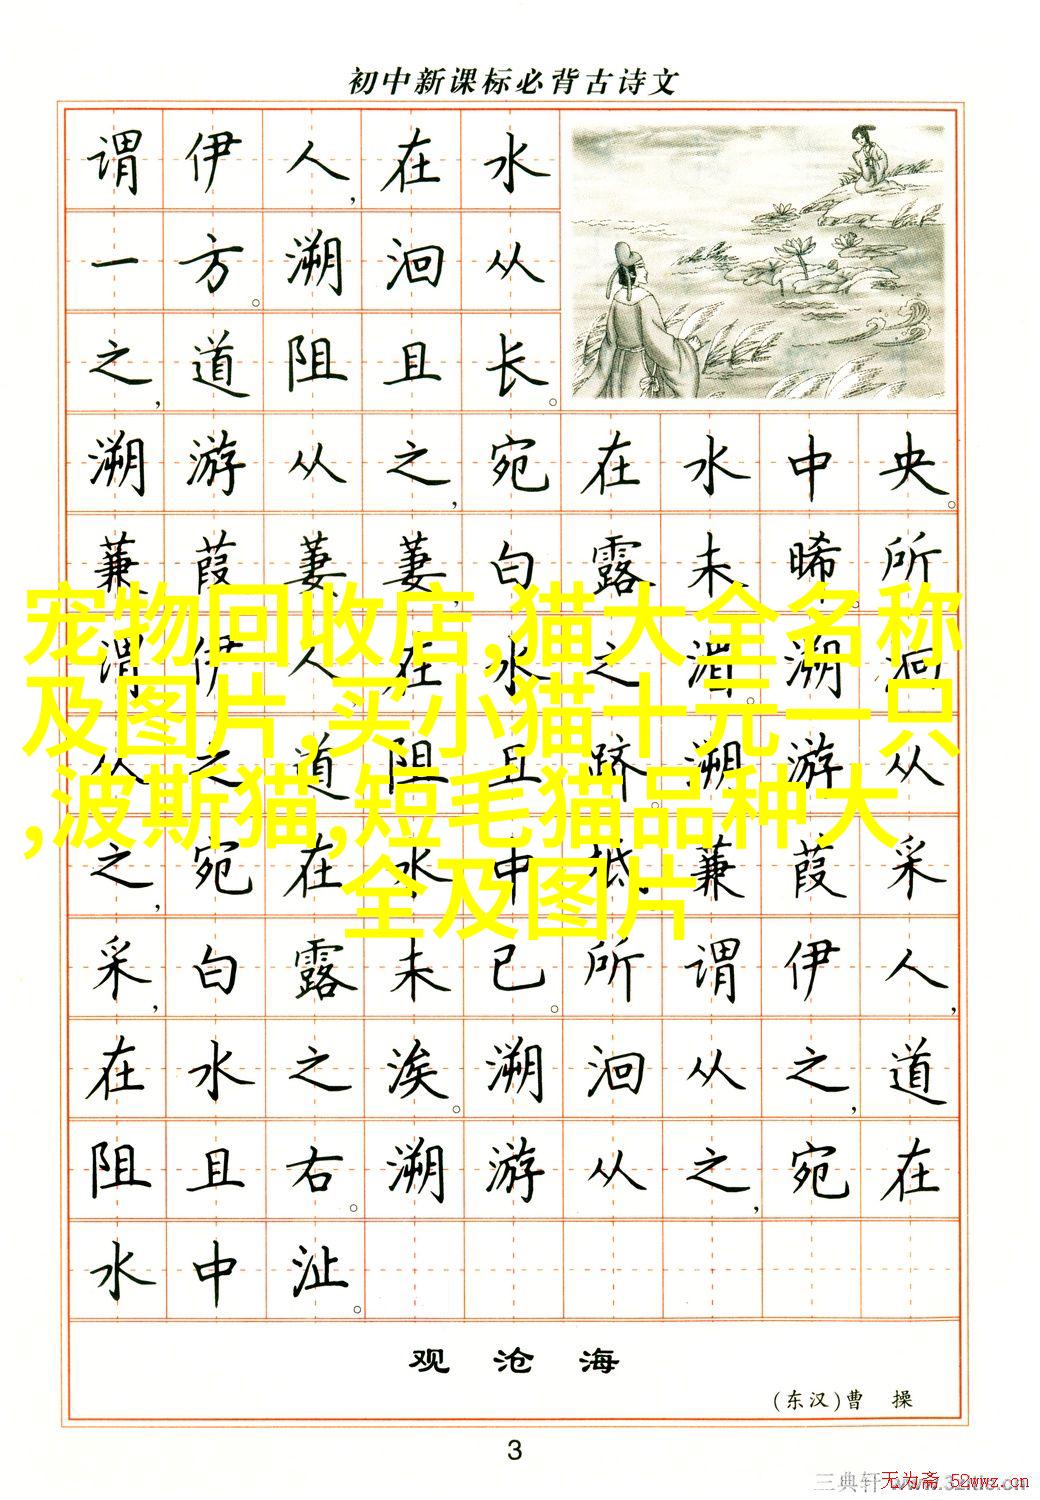 初中新课标必背古诗文
谓伊人，在水
一方。溯洄从
之，道阻且长。
溯游从之，宛在水中央。
蒹葭萋萋，白露未晞。所
谓伊人，在水之湄。溯洄
从之，道阻且跻。溯游从
之，宛在水中坻。蒹葭采
采，白露未已。所谓伊人，
在水之涘。溯洄从之，道
阻且右。溯游从之，宛在
水中沚。
宠物回收店,猫大全名称
及图片,买小猫十元一只
,波斯猫,短毛猫品种大
全及图片
观沧海
(东汉)曹操
3
三典轩
无为斋 52wwz.cn